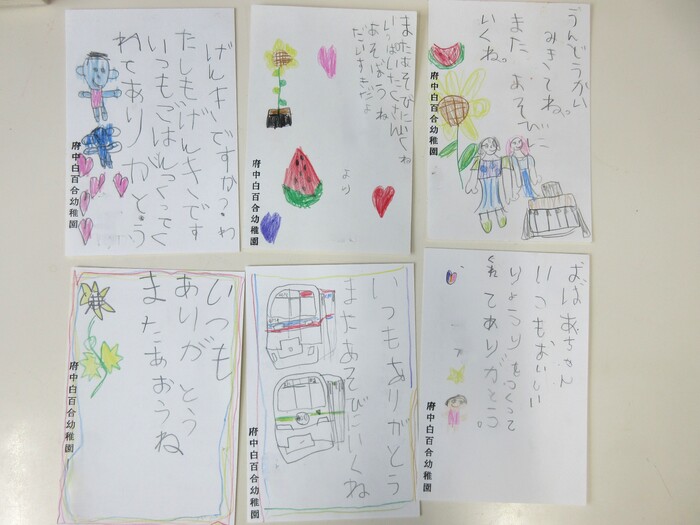 げんきですか？わ
たしもげんきです
いつもごはんつくってく
れてありがとう
府中白百合幼稚園
またあそびにいくね
いっぱいたくさん
あそぼうね
だいすきだよ
より
府中白百合幼稚園
うんどうかい
みきてね。
また あそびに
いくね。
府中白百合幼稚園
いつも
ありがとう
またあおうね
府中白百合幼稚園
いつもありがとう
またあそびにいくね
府中白百合幼稚園
おばあちゃん
いつもおいしい
りょうりをつくって
くれてありがとう。
府中白百合幼稚園